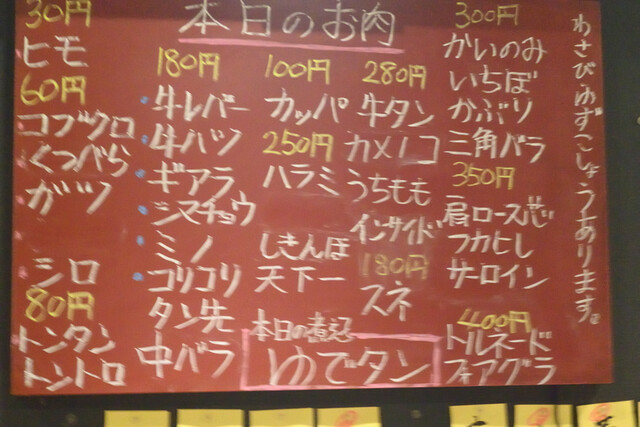 本日のお肉
30円
ヒモ
60円
コブクロ
くつべら
ガツ
シロ
80円
トンタン
トントロ
180円
牛レバー
牛ハツ
ギアラ
シマチョウ
ミノ
コリコリ
タン先
中バラ
100円
カッパ
250円
ハラミ
しきんぼ
天下一
280円
牛タン
カメノコ
うちもも
インサイド
180円
スネ
本日の煮込
ゆでタン
300円
かいのみ
いちぼ
かぶり
三角バラ
350円
肩ロース芯
フカヒレ
サーロイン
400円
トルネード
フォアグラ
わさびゆずこしょうあります。